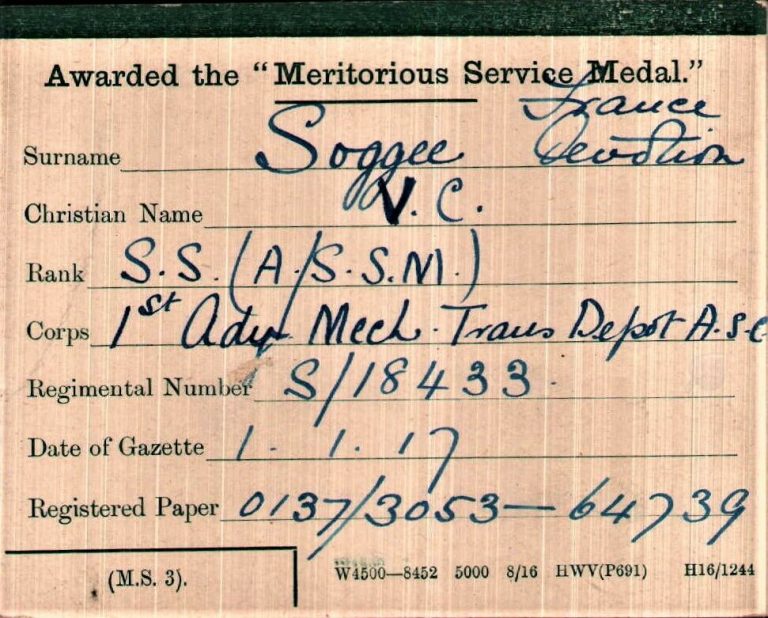 Awarded the "Meritorious Service Medal."
France
Surname Soggee Devotion
Christian Name V. C.
Rank S.S. (A/S.S.M.)
Corps 1st Adv Mech. Trans Depot A.S.C
Regimental Number S/18433.
Date of Gazette 1. 1. 17
Registered Paper 0137/3053—64739
(M.S. 3).
W4500—8452 5000 8/16 HWV(P691) H16/1244